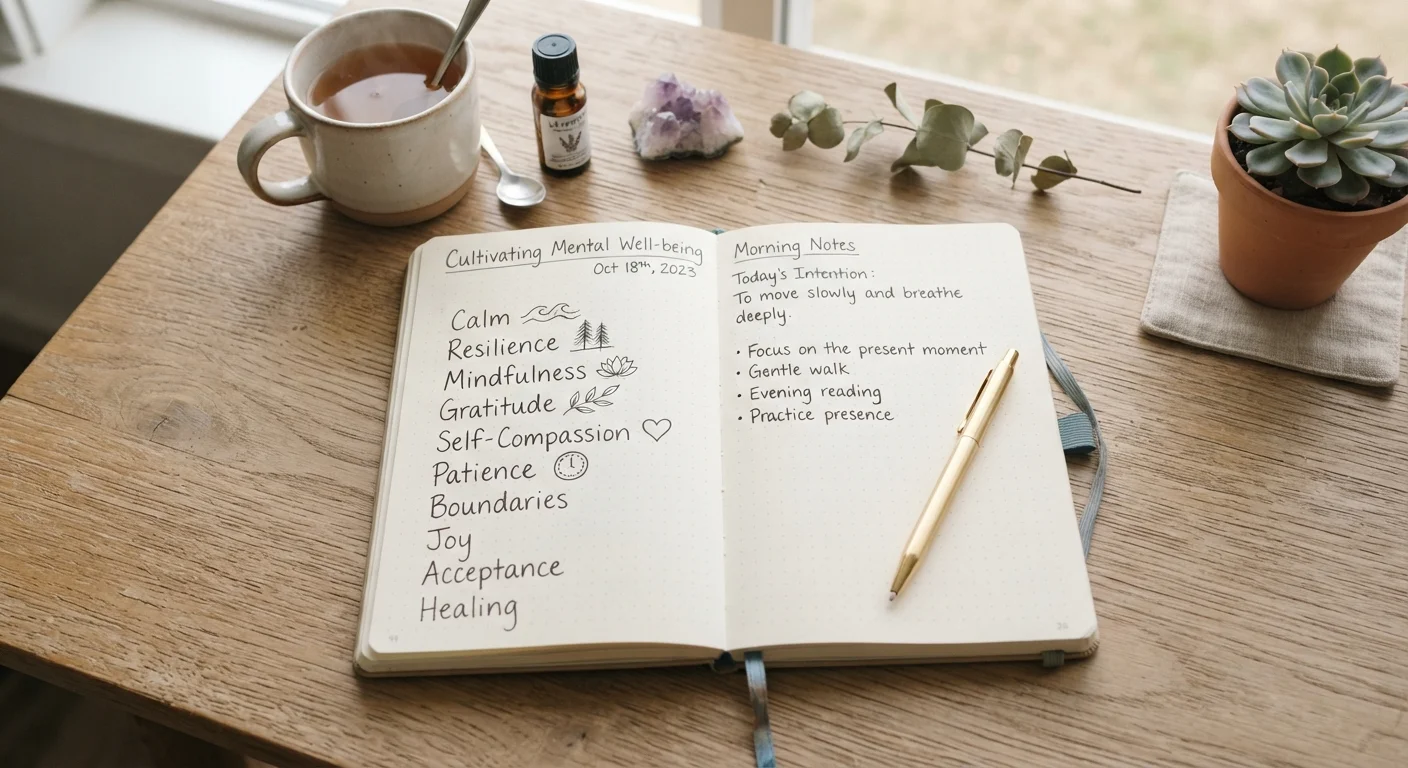 Cultivating Mental Well-being
Oct 18th, 2023
Calm
Resilience
Mindfulness
Gratitude
Self-Compassion
Patience
Boundaries
Joy
Acceptance
Healing
Morning Notes
Today's Intention:
To move slowly and breathe
deeply.
• Focus on the present moment
• Gentle walk
• Evening reading
• Practice presence